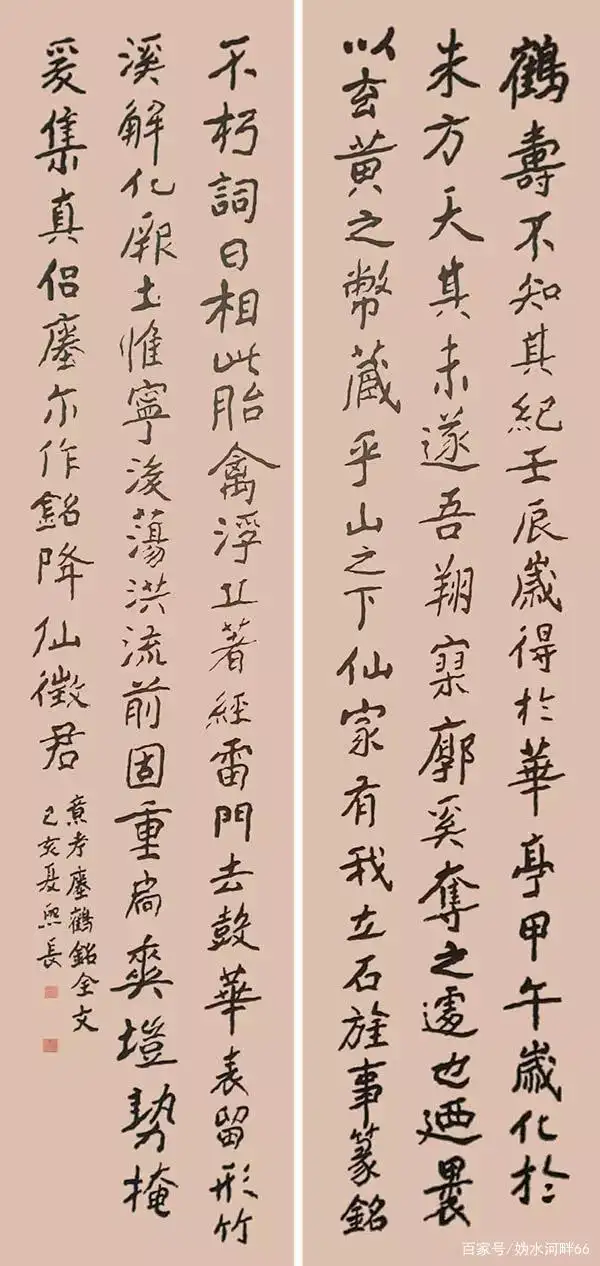 鶴壽不知其紀壬辰歲得於華亭甲午歲化於
朱方天其未遂吾翔寥廓奚奪之遽也迺裹
以玄黃之幣藏乎山之下仙家有我立石旌事篆銘
不朽詞曰相此胎禽浮丘著經雷門去鼓華表留形竹
溪解化厥土惟寧後蕩洪流前固重扃爽塏勢掩
爰集真侶瘞尔作銘降仙徵君
瘞鶴銘全文
己亥夏熙長
百家号/妫水河畔66